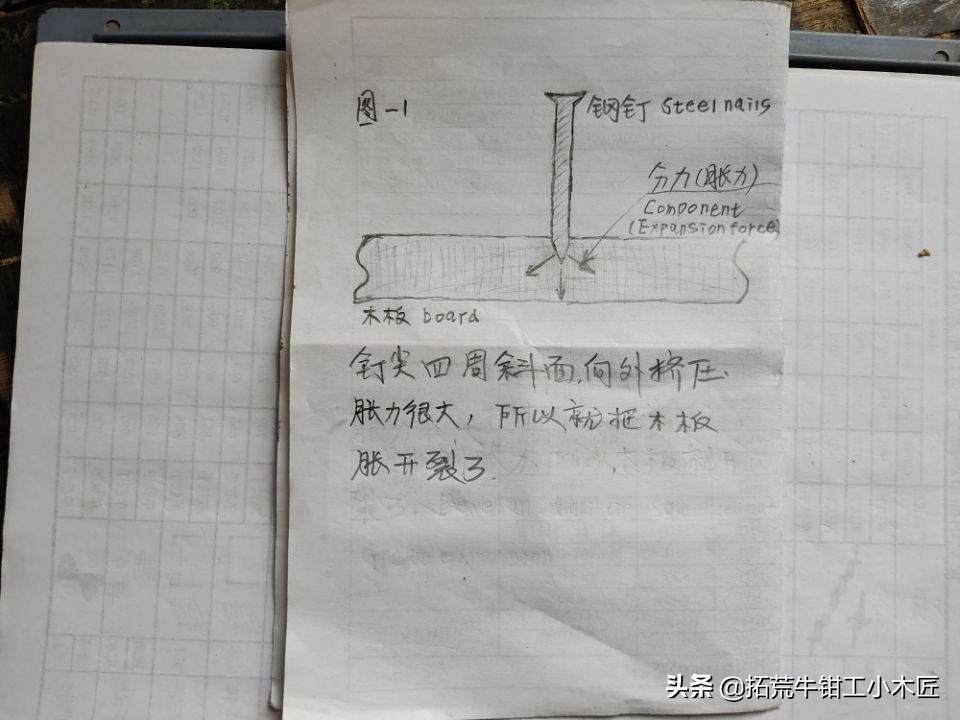 图-1
钢钉 Steel nails
分力(胀力)
Component
(Expansion force)
木板 board
钉尖四周斜面,向外挤压.
胀力很大，所以就把木板
胀开裂了.
头条 @拓荒牛钳工小木匠